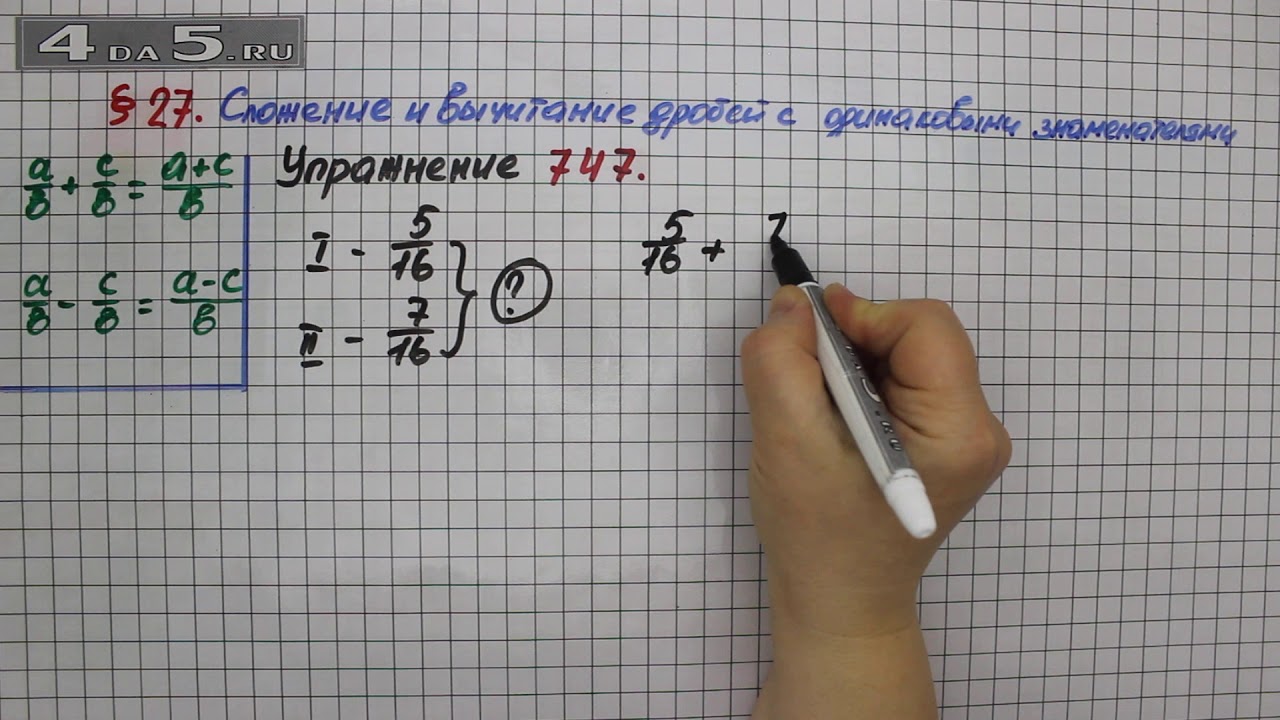 4 DA 5.RU
§ 27. Сложение и вычитание дробей с одинаковыми знаменателями
a/в + c/в = a+c/в
a/в - c/в = a-c/в
Упражнение 747.
I - 5/16
II - 7/16
?
5/16 + 7